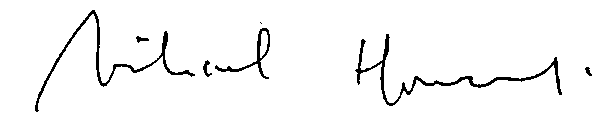 Michael Howard.